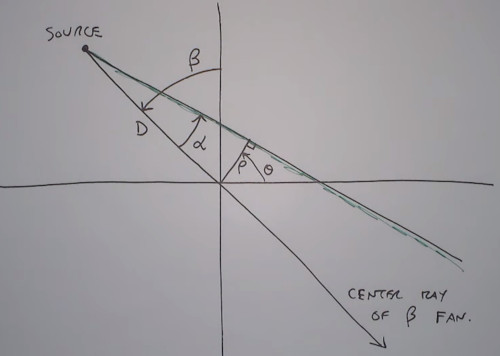 SOURCE
β
D
α
ρ
θ
CENTER RAY
OF β FAN.